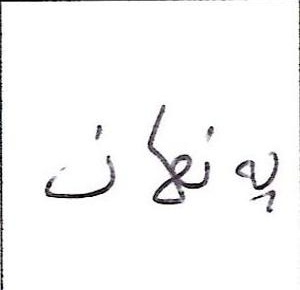 په نهان